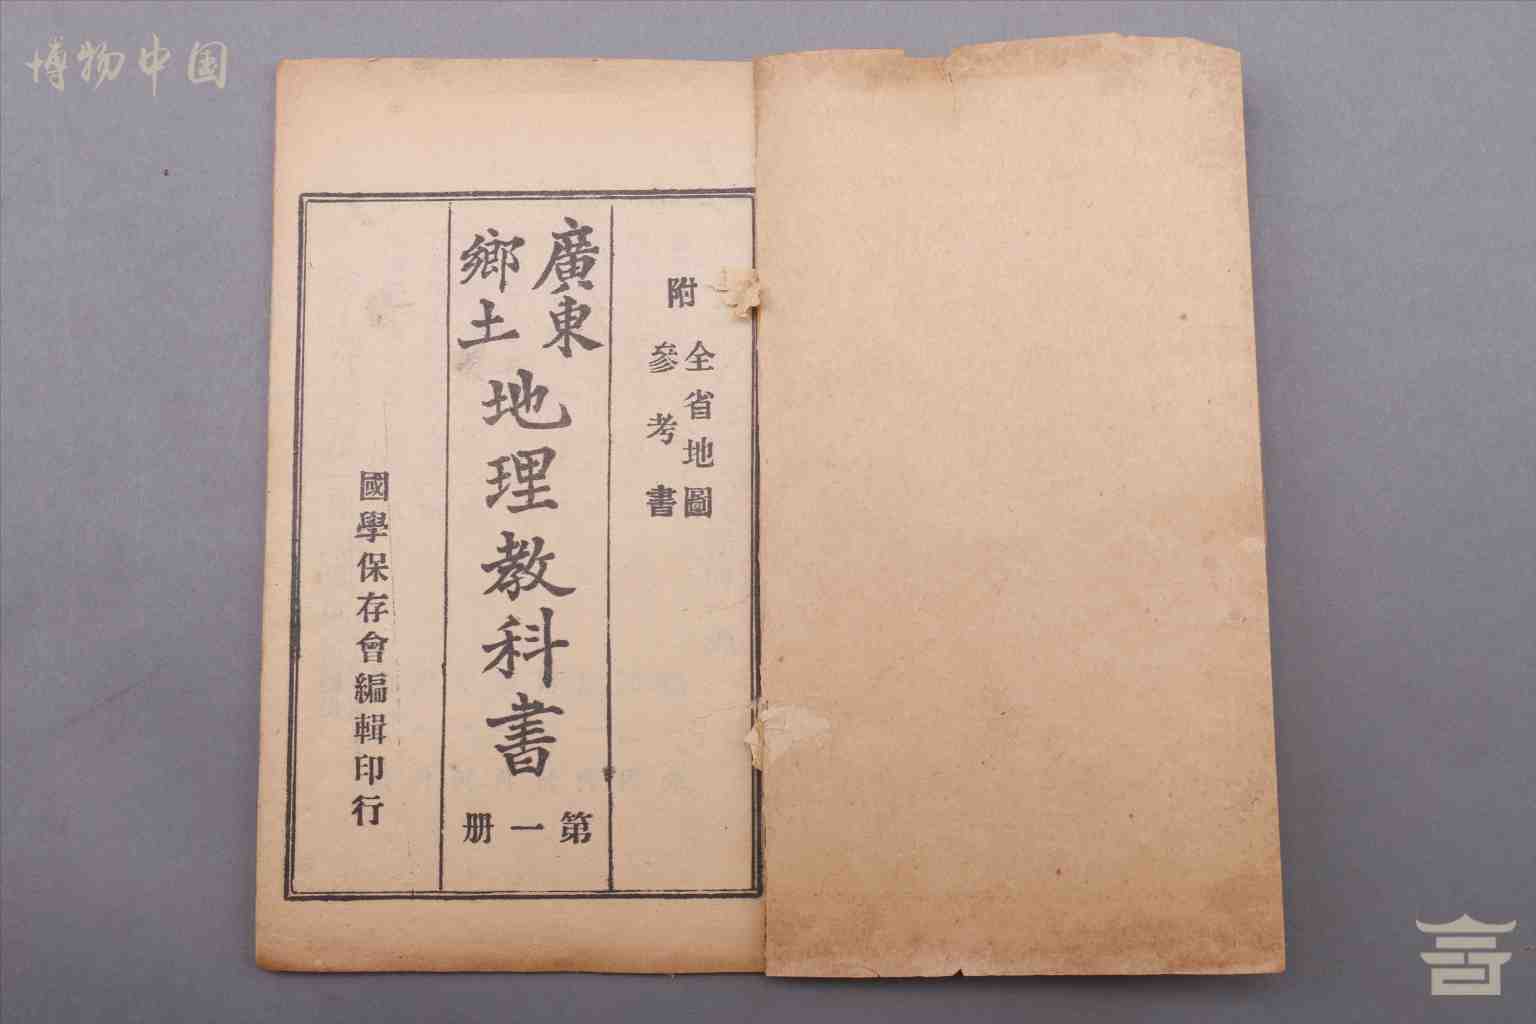 博物中国
附
全省地圖
參考書
廣東
鄉土
地理教科書
第一册
國學保存會編輯印行